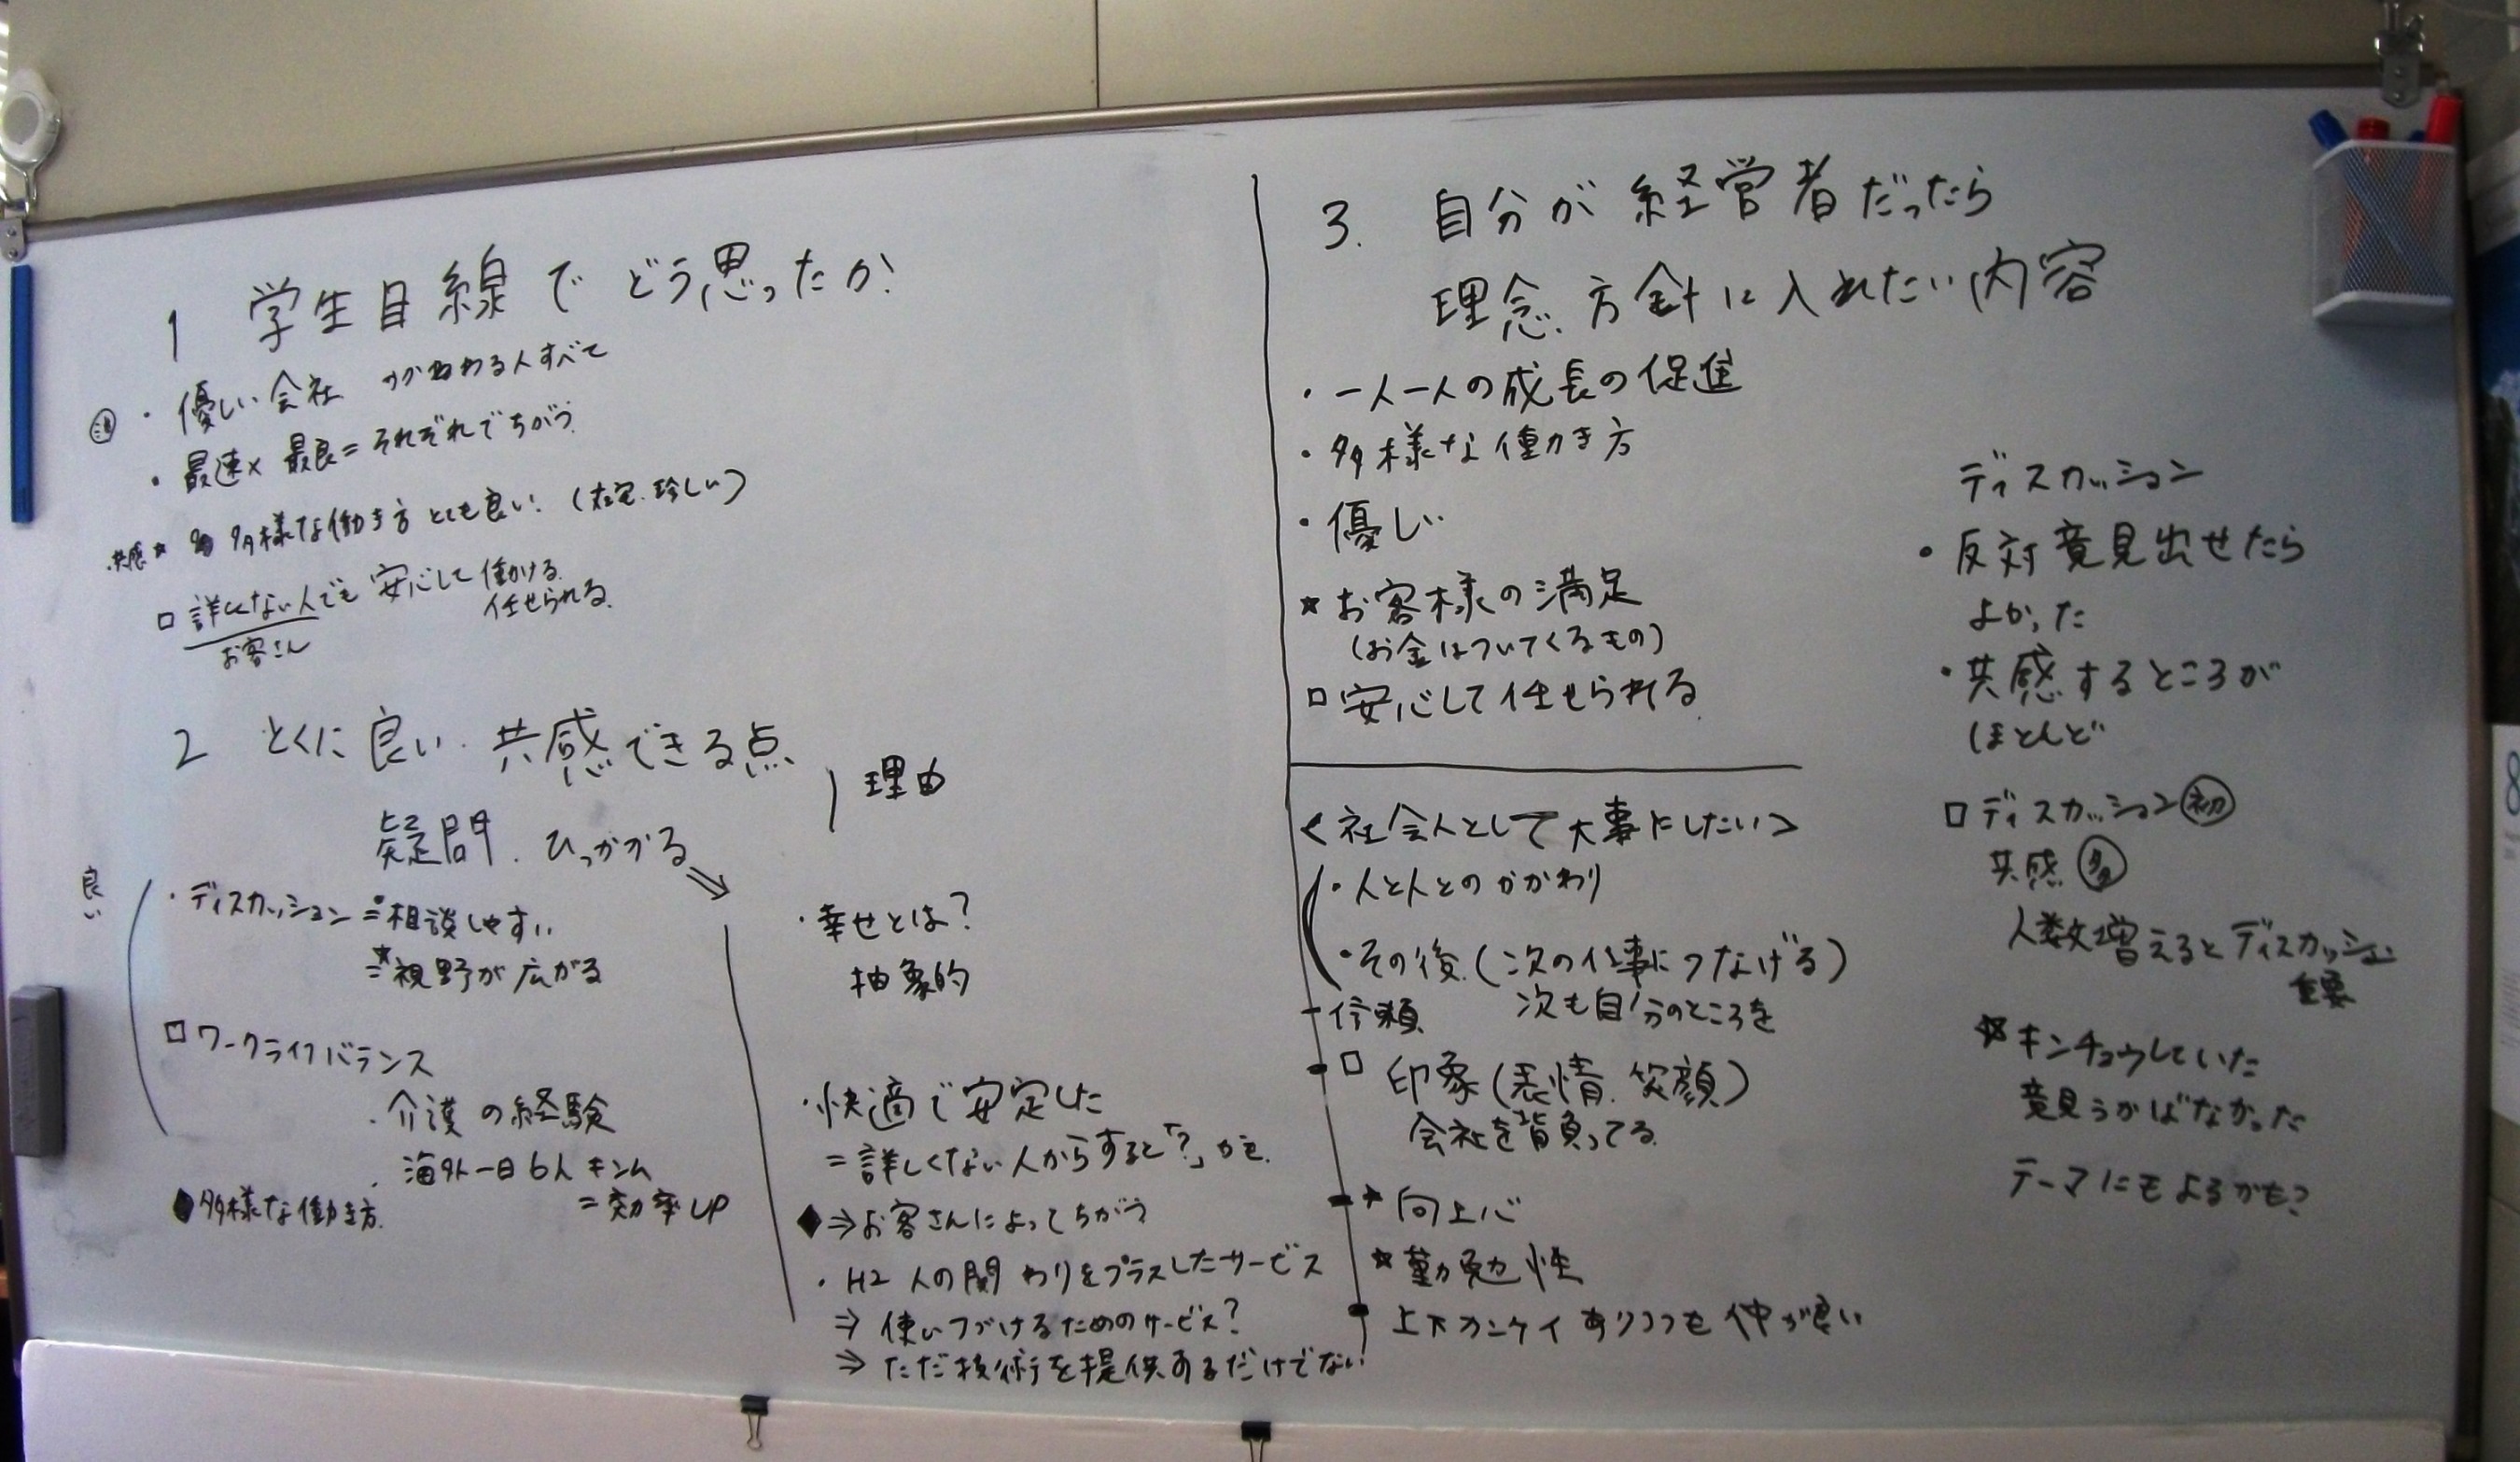 1 学生目線でどう思ったか?
・優しい会社 かかわる人すべて
・最速×最良=それぞれでちがう
共感★ 多様な働き方とても良い!(在宅.珍しい)
□ 詳しくない人でも安心して働ける
任せられる
お客さん
2 とくに良い.共感できる点
疑問.ひっかかる
理由
良い
・ディスカッション=相談しやすい
★=視野が広がる
□ワークライフバランス
・介護の経験
・海外一日6h キンム
=効率UP
◆多様な働き方
・幸せとは?
抽象的
・快適で安定した
=詳しくない人からすると「?」かも
◆⇒お客さんによってちがう
・H2 人の関わりをプラスしたサービス
⇒ 使いつづけるためのサービス?
⇒ ただ技術を提供するだけでない
3. 自分が経営者だったら
理念.方針に入れたい内容
・一人一人の成長の促進
・多様な働き方
・優しい
★お客様の満足
(お金はついてくるもの)
□安心して任せられる
<社会人として大事にしたい>
・人と人とのかかわり
・その後.(次の仕事につなげる)
信頼 次も自分のところを
□ 印象(表情.笑顔)
会社を背負ってる
★向上心
★勤勉性
上下カンケイありつつも仲が良い
ディスカッション
・反対意見出せたら
よかった
・共感するところが
ほとんど
□ディスカッション初
共感 多
人数増えるとディスカッション
重要
★キンチョウしていた
意見うかばなかった
テーマにもよるかも?